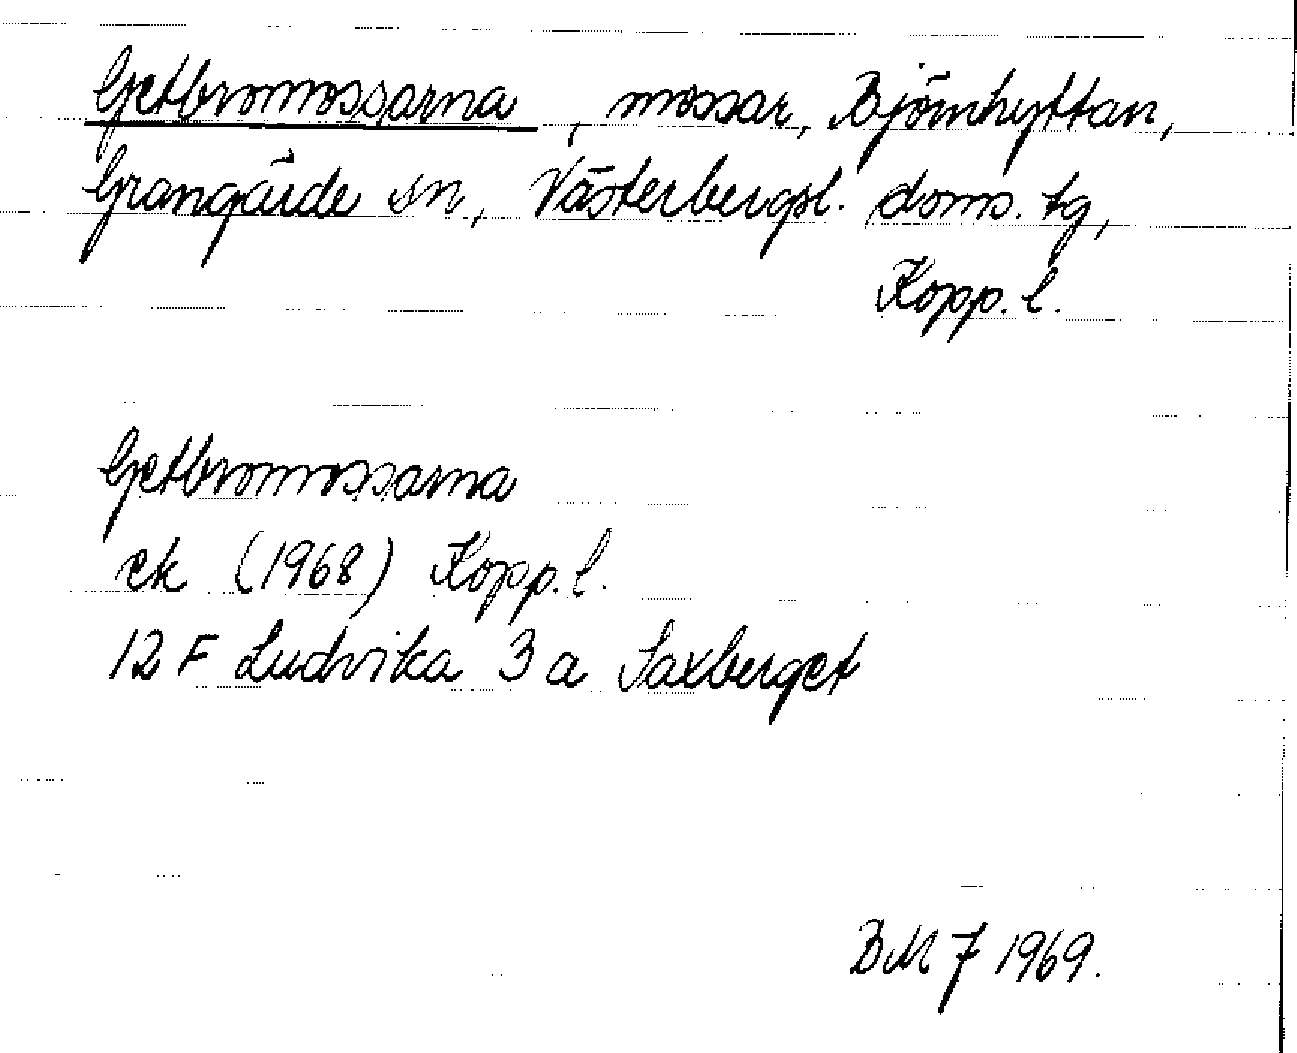 Getbromossarna, mossar, Björnhyttan,
Grangärde sn, Västerbergsl. doms. tg,
Kopp. l.
Getbromossarna
ek (1968) Kopp. l.
12 F Ludvika 3 a Saxberget
BM7 1969.